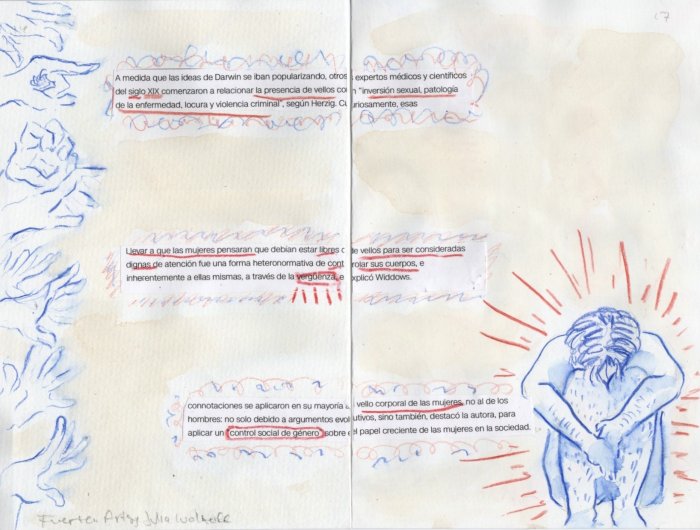 17
A medida que las ideas de Darwin se iban popularizando, otros expertos médicos y científicos
del siglo XIX comenzaron a relacionar la presencia de vellos co "inversión sexual, patología
de la enfermedad, locura y violencia criminal", según Herzig. Cu riosamente, esas
Llevar a que las mujeres pensaran que debían estar libres de vellos para ser consideradas
dignas de atención fue una forma heteronormativa de cont rolar sus cuerpos, e
inherentemente a ellas mismas, a través de la vergüenza, explicó Widdows.
connotaciones se aplicaron en su mayoría a vello corporal de las mujeres, no al de los
hombres: no solo debido a argumentos evolutivos, sino también, destacó la autora, para
aplicar un control social de género sobre el papel creciente de las mujeres en la sociedad.
Julia